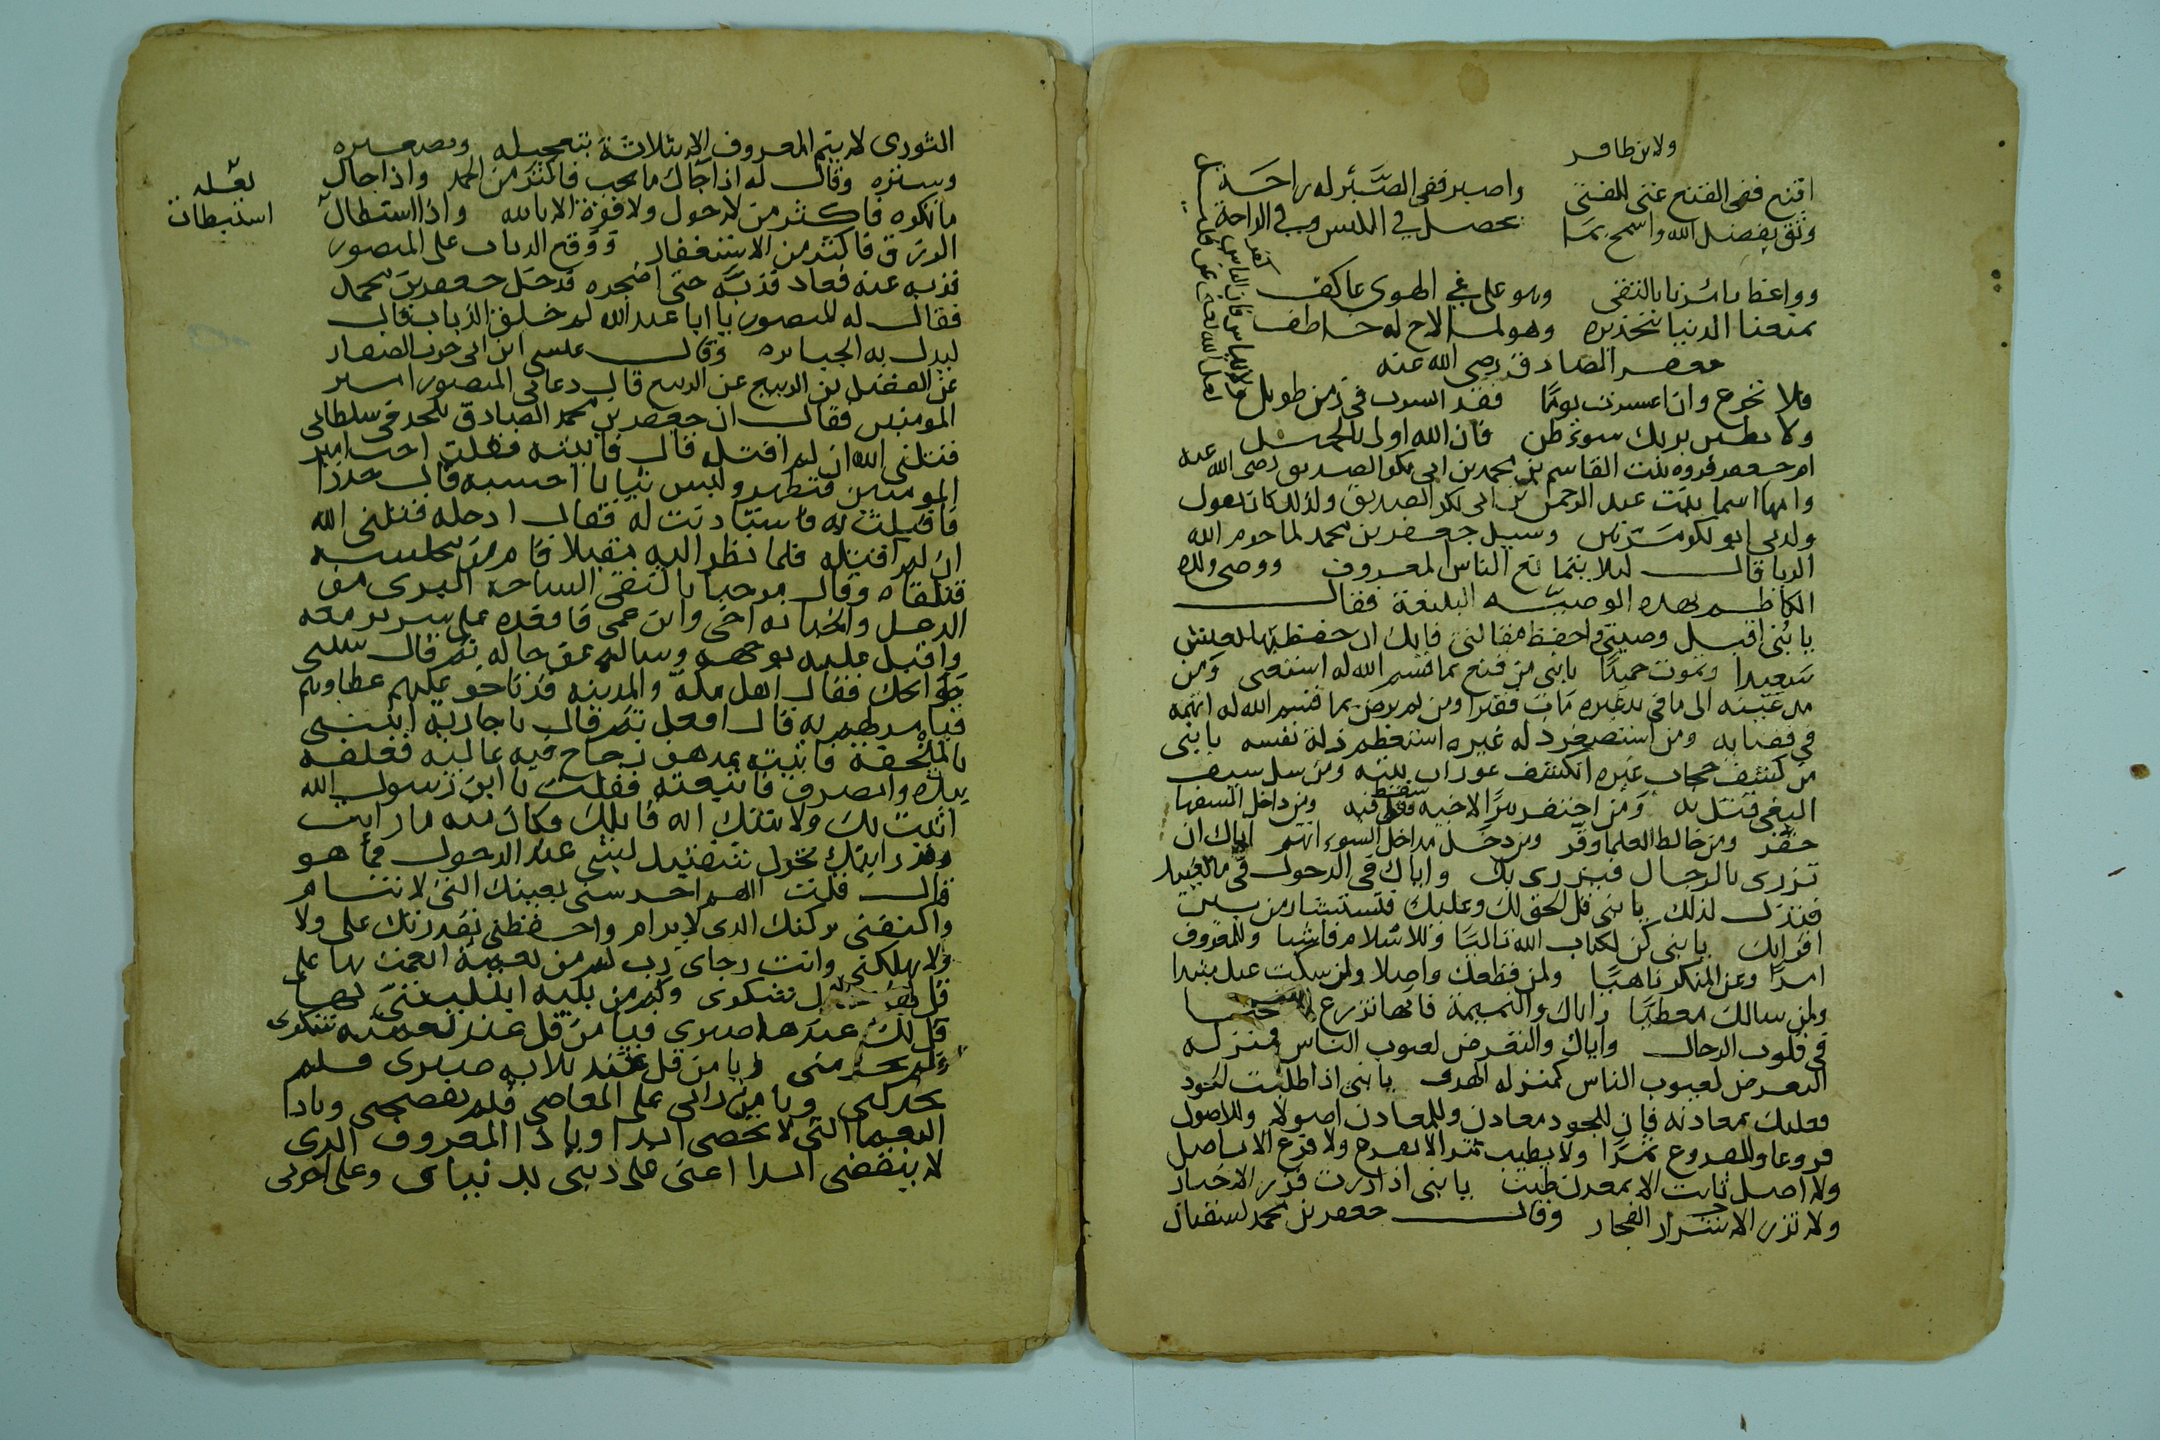 ولابن ظافر
اقنع ففى القنع غنى للفتى واصبر ففى الصبر له راحة
وثق بفضل الله واسمح بما تحصل فى الملبس وفى الراحة
وواعظ يامرنا بالتقى وهو على غي الهوى عاكف
يمنعنا الدنيا بتحذيره وهو لما لاح له خاطف
جعفر الصادق رضى الله عنه
فلا تجزع وان اعسرت يوما فقد ايسرت فى زمن طويل
ولا تظنن بربك سوء ظن فان الله اولى بالجميل
ام جعفر فروه بنت القاسم بن محمد بن ابى بكر الصديق رضى الله عنه
وامها اسما بنت عبد الرحمن بن ابى بكر الصديق ولذلك كان يقول
ولدنى ابو بكر مرتين وسيل جعفر بن محمد لما حرم الله
الربا قال ليلا يتمانع الناس المعروف ووصى ولده
الكاظم بهذه الوصيه البليغة فقال
يا بنى اقبل وصيتى واحفظ مقالتى فانك ان حفظتها تعيش
سعيدا وتموت حميدا يا بنى من قنع بما قسم الله له استغنى ومن
مد عينه الى ما فى يد غيره مات فقيرا ومن لم يرض بما قسم الله له اتهمه
فى قضايه ومن استصغر زلة غيره استعظم زلة نفسه يا بنى
من كشف حجاب غيره انكشف عورات بيته ومن سل سيف
البغى قتل به ومن احتفر بيرا لاخيه سقط فيه ومن داخل السفها
حقر ومن خالط العلما وقر ومن دخل مداخل السوء اتهم اياك ان
تزرى بالرجال فيزرى بك واياك فى الدخول فى ما لا يعنيك
فتذل لذلك يا بنى قل الحق لك وعليك فتستشار من بين
اقرانك يا بنى كن لكتاب الله تاليا وللاسلام فاشيا وللمعروف
امرا وعن المنكر ناهيا ولمن قطعك واصلا ولمن سكت عنك مبتدا
ولمن سالك معطيا واياك والنميمة فانها تزرع الشحنا
فى قلوب الرجال واياك والتعرض لعيوب الناس فمنزله
التعرض لعيوب الناس كمنزله الهدف يا بنى اذا طلبت الجود
فعليك بمعادنه فان للجود معادن وللمعادن اصولا وللاصول
فروعا وللفروع ثمرا ولا يطيب ثمر الا بفرع ولا فرع الا باصل
ولا اصل ثابت الا بمعدن طيب يا بنى اذا زرت فزر الاخيار
ولا تزر الاشرار الفجار وقال جعفر بن محمد لسفيان
الثورى لا يتم المعروف الا بثلاثة بتعجيله وتصغيره
وبستره وقال له اذا جاك ما تحب فاكثر من الحمد واذا جاك
ما تكره فاكثر من لا حول ولا قوة الا بالله واذا استبطات
الرزق فاكثر من الاستغفار ووقع الذباب على المنصور
فذبه عنه فعاد فذبه حتى اضجره فدخل جعفر بن محمد
فقال له المنصور يا ابا عبد الله لم خلق الذباب قال
ليذل به الجبابره وقال عيسى ابن ابى حرب الصفار
عن الفضل بن الربيع عن الربيع قال دعانى المنصور امير
المومنين فقال ان جعفر بن محمد الصادق يلحد فى سلطانى
قتلنى الله ان لم اقتله قال فاتيته فقلت اجب امير
المومنين فتطهر ولبس ثيابا احسبه قال جددا
فاقبلت به فاستاذنت له فقال ادخله قتلنى الله
ان لم اقتله فلما نظر اليه مقبلا قام من مجلسه
فتلقاه وقال مرحبا بالتقى الساحه البرى من
الدغل والخيانه اخى وابن عمى فاقعده على سريره معه
واقبل عليه بوجهه وساله عن حاله ثم قال سلنى
حوايجك فقال اهل مكة والمدينه قد تاخر عليهم عطاوهم
فتامر لهم به قال افعل ثم قال يا جاريه ايتينى
بالملحفة فاتيته بمدهن زجاج فيه غاليه فغلفه
بيده وانصرف فاتبعته فقلت يا ابن رسول الله
اتيت بك ولا شك انه قاتلك فكان منه ما رايت
وقد رايتك تحرك شفتيك بشى عند الدخول فما هو
قال قلت اللهم احرسنى بعينك التى لا تنام
واكنفنى بركنك الذى لا يرام واحفظنى بقدرتك على ولا
ولا تهلكنى وانت رجاى رب كم من نعمة انعمت بها على
قل لك شكرى وكم من بليه ابتليتنى بها
قل لك عندها صبرى فيا من قل عند نعمته شكرى
فلم يحرمنى ويا من قل عند بلايه صبرى فلم
يخذلنى ويا من رانى على المعاصى فلم يفضحنى ويا ذا
النعما التى لا تحصى ابدا ويا ذا المعروف الذى
لا ينقضى ابدا اعنى على دينى بدنياى وعلى اخرتى
لعله
استبطات